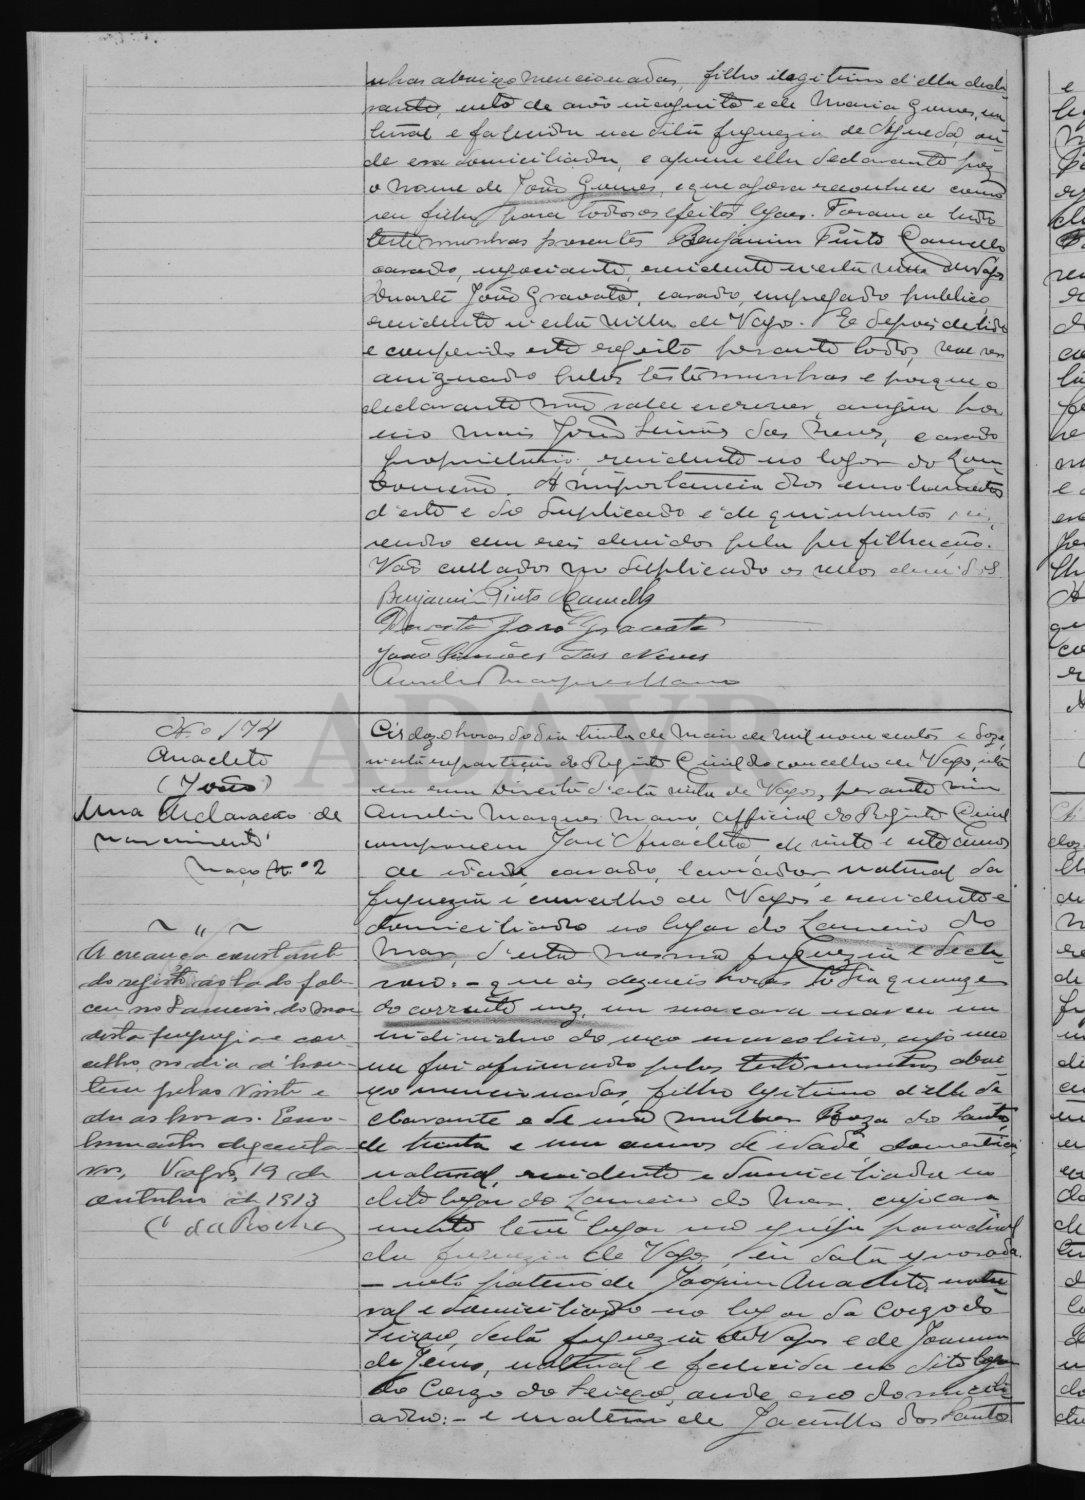 nhas abaixo mencionadas, filho ilegitimo d'ella decla
rante, neto de avô incognito e de Maria Gomes, na
tural e falecida na dita freguezia de Agueda, on
de era domiciliada, e a quem ella declarante poz
o nome de João Gomes, e que agora reconhece como
seu filho para todos os efeitos legaes. Foram a tudo
testemunhas presentes Benjamim Pinto Camello
casado, negociante, residente n'esta villa de Vagos
Duarte João Gravato, casado, empregado publico,
residente n'esta villa de Vagos. E depois de lido
e conferido este registo perante todos, vae ser
assignado pelas testemunhas e porque a
declarante não sabe escrever, assigna por
João Simões das Neves, casado
proprietario, residente no logar do Lom
bomeão. A importancia dos emolumentos
d'este e do duplicado é de quinhentos
cem reis devidos pela perfilhação.
Vão collados no duplicado os sellos devidos.
Benjamin Pinto Camello
Duarte João Gravato
João Simões das Neves
Aurelio Marques Mano
ADAVR
N.o 174
Anacleto
(João)
Uma declaração de
nascimento
maço N.o 2
~ " ~
A creança constante
do registo ao lado fale-
ceu no Lameiro do Mar
desta freguezia e con-
celho, no dia d'hon-
tem pelas vinte e
duas horas. Emo-
lumentos
Vagos, 19 de
outubro de 1913
da Rocha
Ás doze horas do dia trinta de Maio de mil nove centos e doze,
n'esta repartição do Registo Civil do concelho de Vagos, sita
na rua Direita d'esta villa de Vagos, perante mim
Aurelio Marques Mano, official do Registo Civil
compareceu José Anacleto, de vinte e sete annos
de idade, casado, lavrador, natural da
freguezia e concelho de Vagos e residente e
domiciliado no logar do Lameiro do
Mar, d'esta mesma freguezia e decla-
rou: - que ás dezeseis horas do dia quinze
do corrente mez, em sua casa nasceu um
individuo do sexo masculino, cujo
foi afirmado pelas testemunhas abai
xo mencionadas, filho legitimo d'elle de
clarante e de sua mulher Roza dos Santos,
de trinta e um annos de idade, domestica,
natural, residente e domiciliada no
dito logar do Lameiro do Mar cujo casa
mento teve logar na egreja parochial
da freguezia de Vagos, em data ignorada.
- neto paterno de Joaquim Anacleto, natu
ral e domiciliado no logar da Corgo do
Seixo, desta freguezia de Vagos e de Joanna
de Jesus, natural e falecida no dito logar
do Corgo do Seixo, onde era domicili
ada: - e materno de Jacintho dos Santos